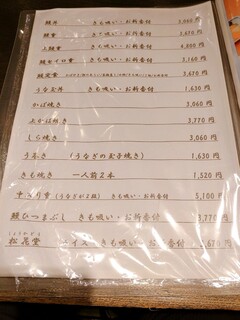 鰻丼 きも吸い・お新香付 3,060円
鰻重 きも吸い・お新香付 3,670円
上鰻重 きも吸い・お新香付 4,800円
鰻セイロ重 きも吸い・お新香付 3,160円
鰻定食 3,670円
うなぎ丼 きも吸い・お新香付 1,630円
かば焼き 3,060円
上かば焼き 3,770円
しら焼き 3,060円
うまき (うなぎの玉子焼き) 1,630円
きも焼き 一人前2本 1,520円
中入り重 (うなぎが2段) きも吸い・お新香付 5,100円
鰻ひつまぶし きも吸い・お新香付 3,770円
松花堂 アイス・きも吸い・お新香付 3,670円